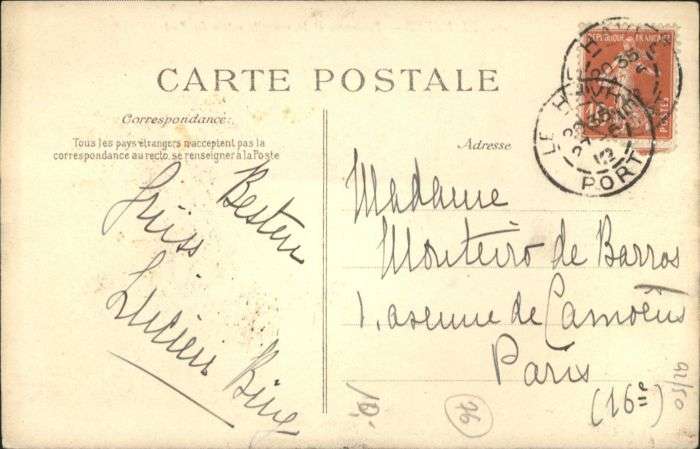 CARTE POSTALE
Correspondance:
Tous les pays étrangers n'acceptent pas la
correspondance au recto, se renseigner à la Poste
Adresse
REPUBLIQUE FRANÇAISE
POSTES
LE HAVRE
PORT
Besten
Grüss
Lucien Bing
Madame
Monteiro de Barros
1, avenue de Camoëns
Paris
(16e)
10,-
76
91/50